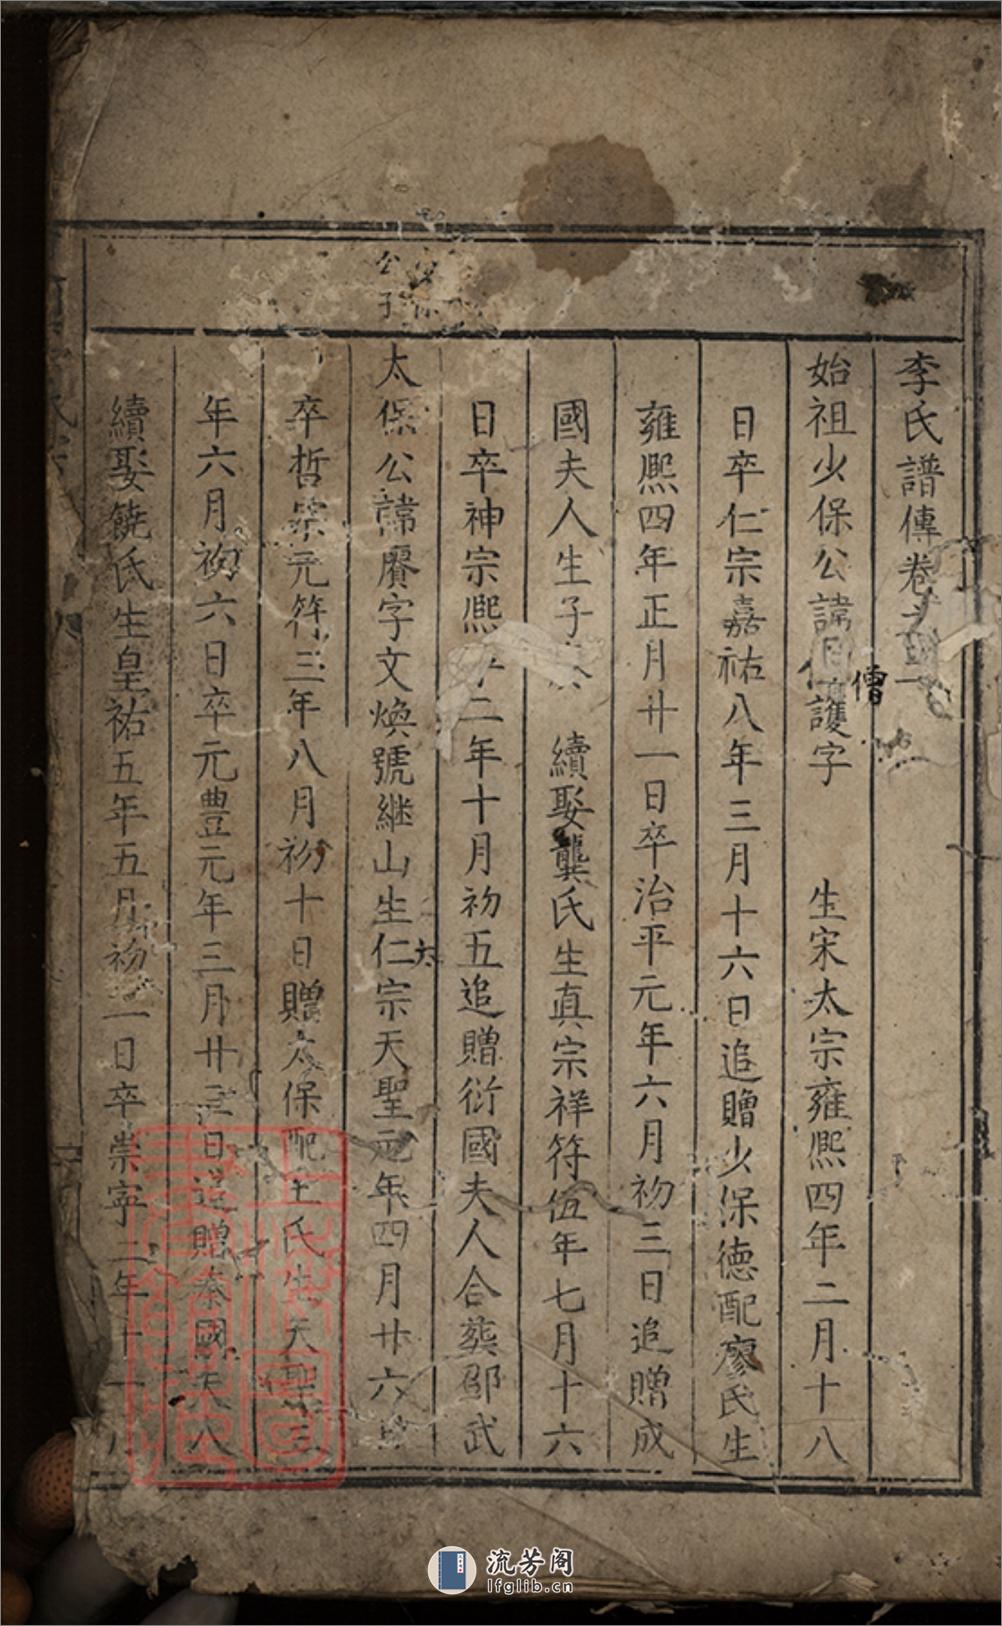 李氏譜傳卷之
始祖少保公諱護字 生宋太宗雍熙四年二月十八
僧
日卒仁宗嘉祐八年三月十六日追贈少保德配廖氏生
雍熙四年正月廿一日卒治平元年六月初三日追贈成
國夫人生子 續娶龔氏生真宗祥符伍年七月十六
日卒神宗熙二年十月初五追贈衍國夫人合葬邵武
公子
太保公諱賡字文煥號継山生仁宗天聖元年四月廿六日
六
卒哲宗元符三年八月初十日贈太保配王氏生天聖
年六月初六日卒元豊元年三月廿三日追贈秦國夫人
續娶饒氏生皇祐五年五月初二日卒崇寧二年十一月
上海圖書館藏
流芳阁
lfglib.cn